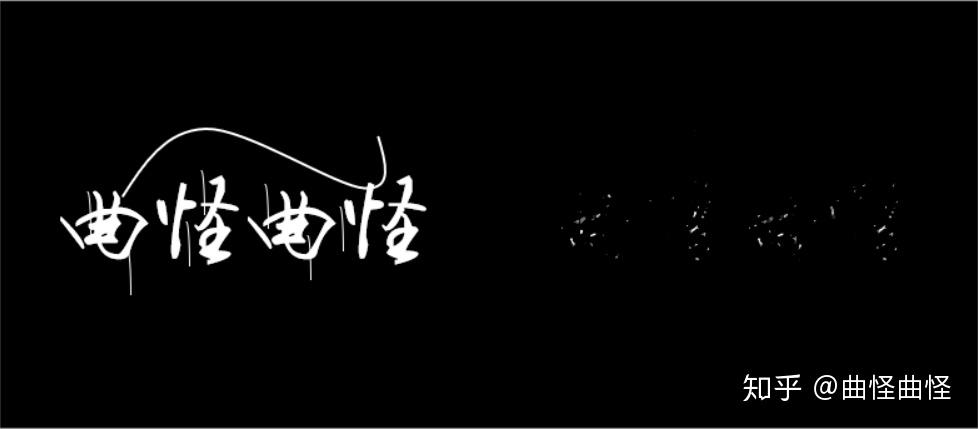 曲怪曲怪
知乎 @曲怪曲怪